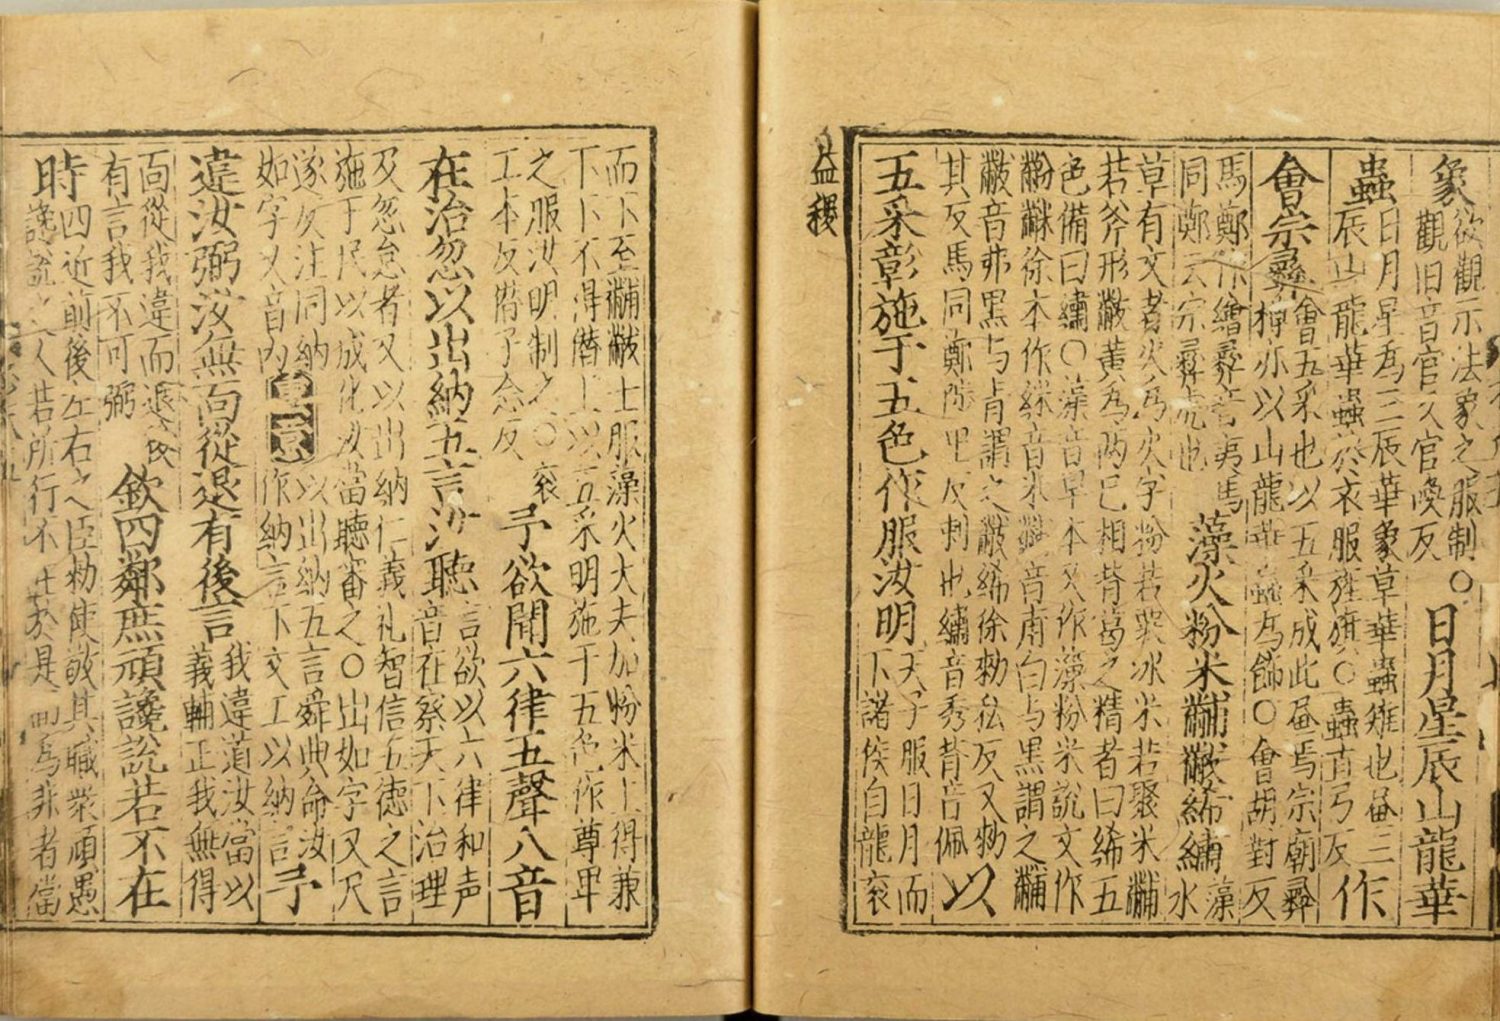 象欲觀示法象之服制○觀旧音官又官喚反日月星辰山龍華
蟲日月星為三辰華象草華蟲雉也畫三辰山龍華蟲於衣服旌旗○蟲直弓反作
會宗彝會五采也以五采成此畫焉宗廟彝樽亦以山龍華蟲為飾○會胡對反
馬鄭作繪彝音夷馬同鄭云宗彝虎也藻火粉米黼黻絺繡藻水
草有文者火為火字粉若粟冰米若聚米黼若斧形黻為两己相背葛之精者曰絺五
色備曰繡○藻音早本又作薻粉米說文作黺䋛徐本作絲音米黼音甫白与黑謂之黼
黻音弗黑与青謂之黻絺徐勑私反又勑其反馬同鄭陟里反刺也繡音秀背音佩以
五采彰施于五色作服汝明天子服日月而下諸侯自龍袞
益稷
而下至黼黻士服藻火大夫加粉米上得兼下下不得僭上以五采明施于五色作尊卑
之服汝明制之○袞工本反僭子念反予欲聞六律五聲八音
在治忽以出納五言汝聽言欲以六律和声音在察天下治理
及忽怠者又以出納仁義礼智信五德之言施于民以成化汝當聽審之○出如字又尺
遂反注同納如字又音內重言以出納五言舜典命汝作納言下文工以納言予
違汝弼汝無面從退有後言我違道汝當以義輔正我無得
面從我違而退後有言我不可弼欽四鄰庶頑讒說若不在
時四近前後左右之臣勑使敬其職衆頑愚讒說之人若所行不在於是而為非者當